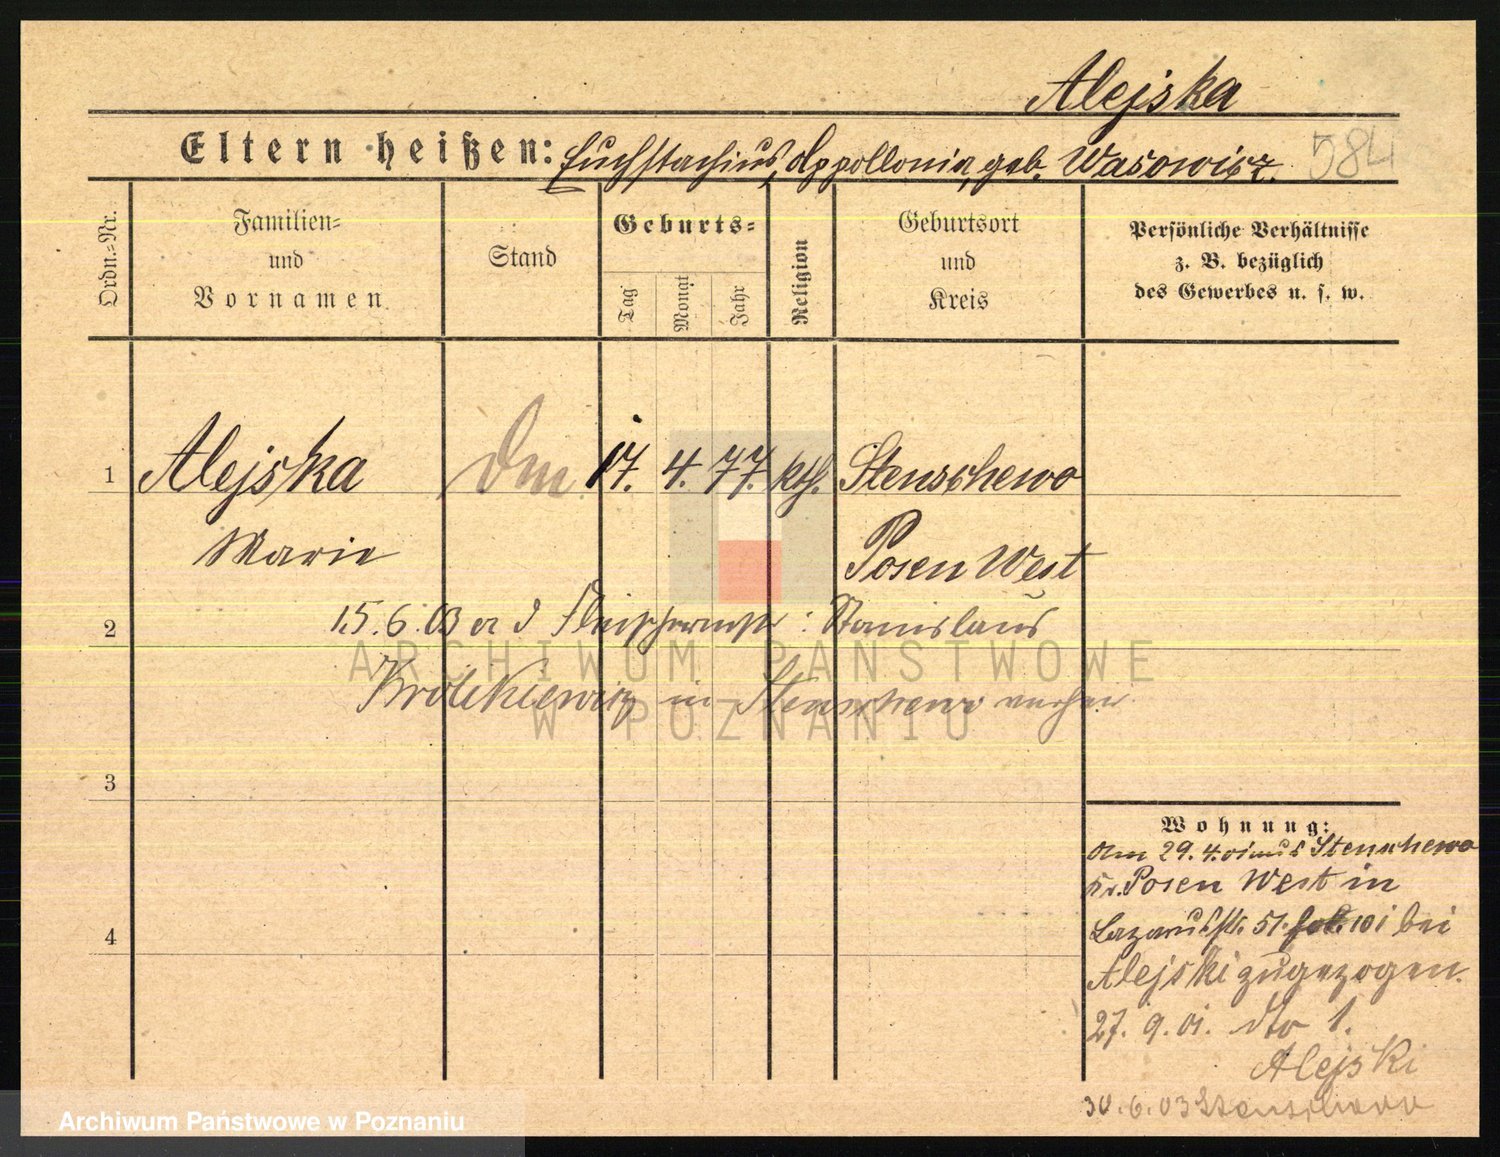 Alejska
Eltern heißen: Euchstachius, Appollonia, geb. Wasowicz. 584
Ordn.=Nr.
Familien=
und
Vornamen
Stand
Geburts=
Tag
Monat
Jahr
Religion
Geburtsort
und
Kreis
Persönliche Verhältnisse
z. B. bezüglich
des Gewerbes u. s. w.
1 Alejska 17. 4. 77. kth. Stenschewo
Marie Posen West
2 15.6.03 Stanislaus
in Stenschewo
3
4
Wohnung:
Am 29.4.01 aus Stenschewo
Kr. Posen West in
Lazarusstr. 51. bei
Alejski zugezogen.
27. 9. 01. dto 1.
Alejski
30.6.03 Stenschewo
ARCHIWUM PAŃSTWOWE
W POZNANIU
Archiwum Państwowe w Poznaniu